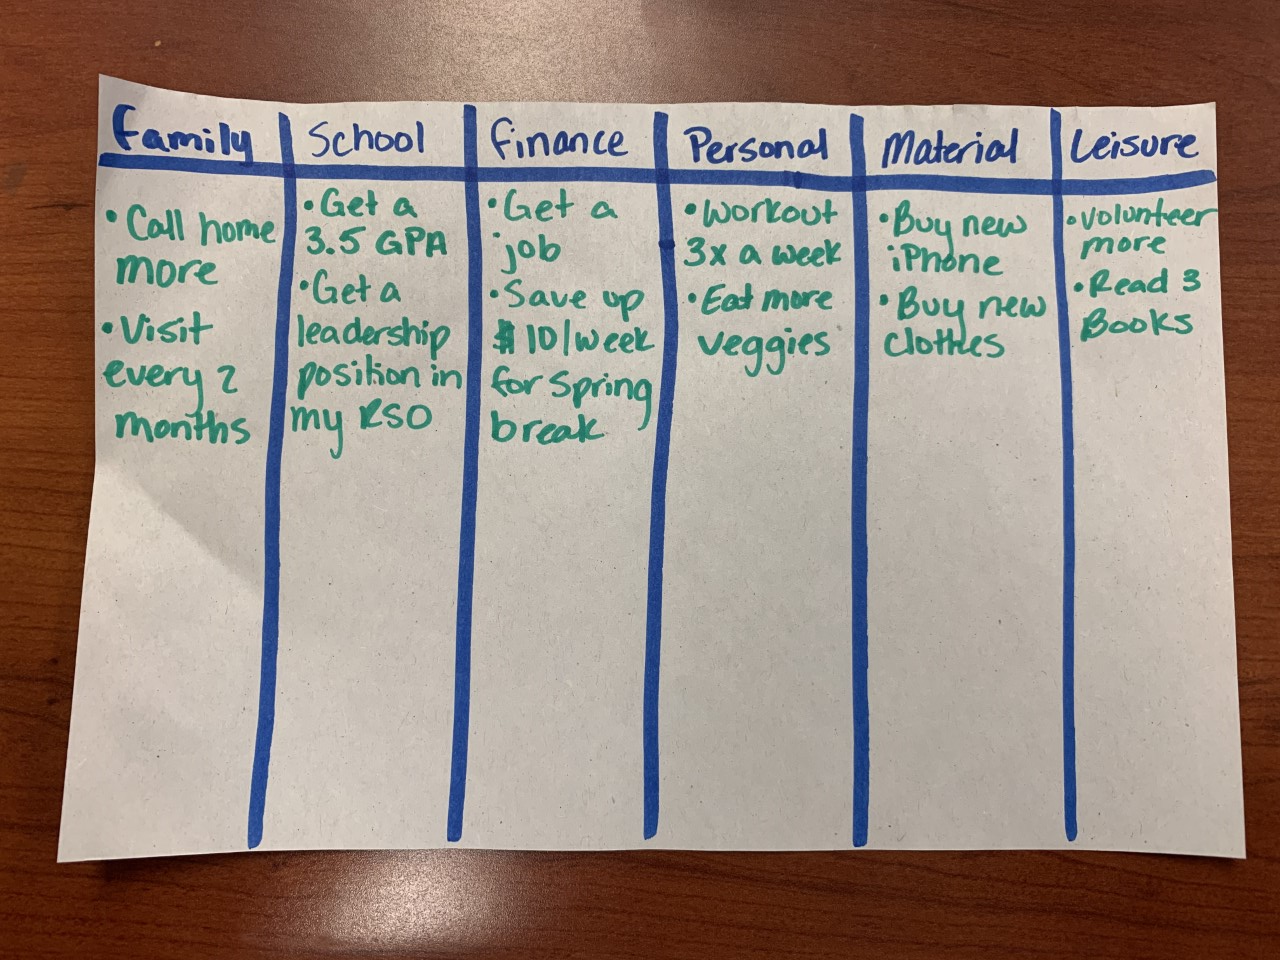 Family
• Call home
more
• Visit
every 2
months
School
• Get a
3.5 GPA
• Get a
leadership
position in
my RSO
Finance
• Get a
job
• Save up
$10/week
for Spring
break
Personal
• Workout
3x a week
• Eat more
veggies
Material
• Buy new
iPhone
• Buy new
clothes
Leisure
• Volunteer
more
• Read 3
Books